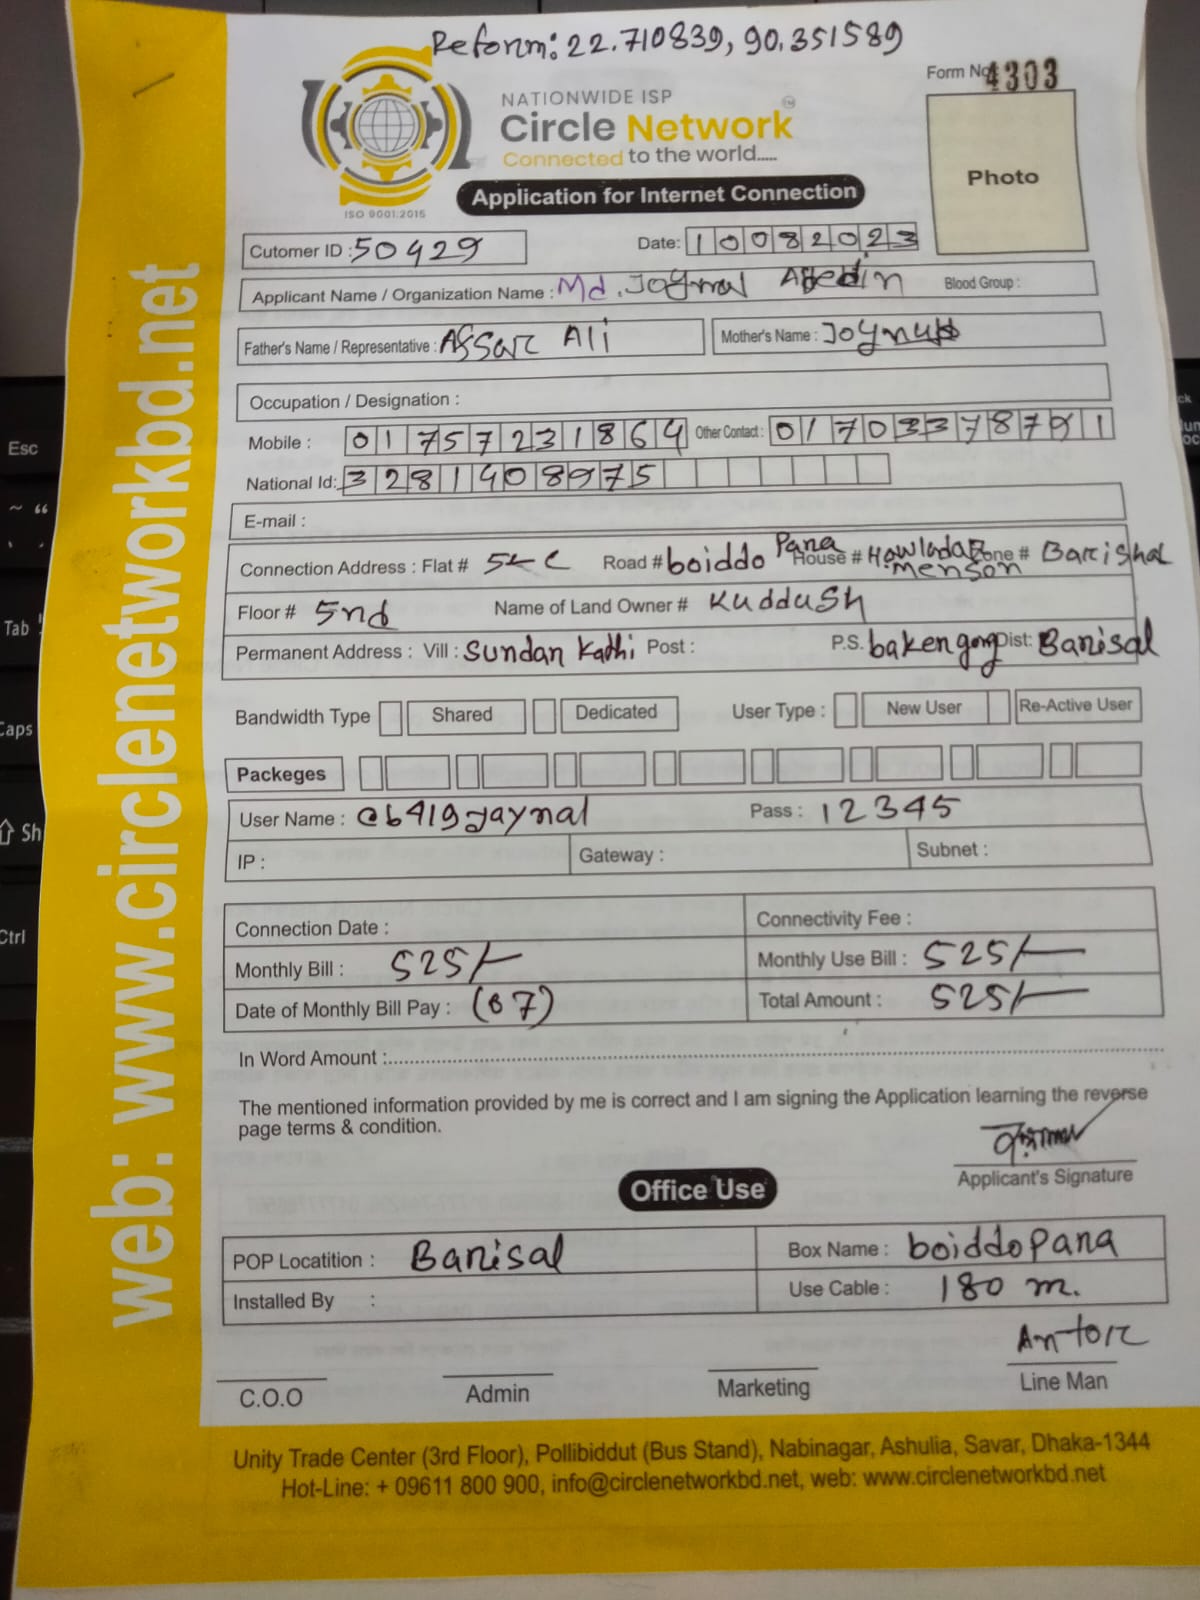 Reform: 22.710839, 90.351589
Form No 4303
NATIONWIDE ISP
Circle Network
TM
Connected to the world.....
ISO 9001:2015
Application for Internet Connection
Photo
Cutomer ID : 50429
Date: 10082023
Applicant Name / Organization Name : Md. Joynal Abedin Blood Group :
Father's Name / Representative : Assar Ali Mother's Name :
Occupation / Designation :
Mobile : 01757231864 Other Contact : 01703378791
National Id: 3281408975
E-mail :
Connection Address : Flat # Road # boiddo Para House # Howladar Menson Zone # Barishal
Floor # 5nd Name of Land Owner # Kuddush
Permanent Address : Vill : Sundar Kathi Post : P.S. bakergong Dist: Barisal
Bandwidth Type Shared Dedicated User Type : New User Re-Active User
Packeges
User Name : @6419Jaynal Pass : 12345
IP : Gateway : Subnet :
Connection Date : Connectivity Fee :
Monthly Bill : 525/- Monthly Use Bill : 525/-
Date of Monthly Bill Pay : (07) Total Amount : 525/-
In Word Amount :
The mentioned information provided by me is correct and I am signing the Application learning the reverse
page terms & condition.
Applicant's Signature
Office Use
POP Locatition : Barisal Box Name : boiddopara
Installed By : Use Cable : 180 m.
Antor
C.O.O Admin Marketing Line Man
Unity Trade Center (3rd Floor), Pollibiddut (Bus Stand), Nabinagar, Ashulia, Savar, Dhaka-1344
Hot-Line: + 09611 800 900, info@circlenetworkbd.net, web: www.circlenetworkbd.net
web: www.circlenetworkbd.net
Esc
Tab
Caps
Sh
Ctrl